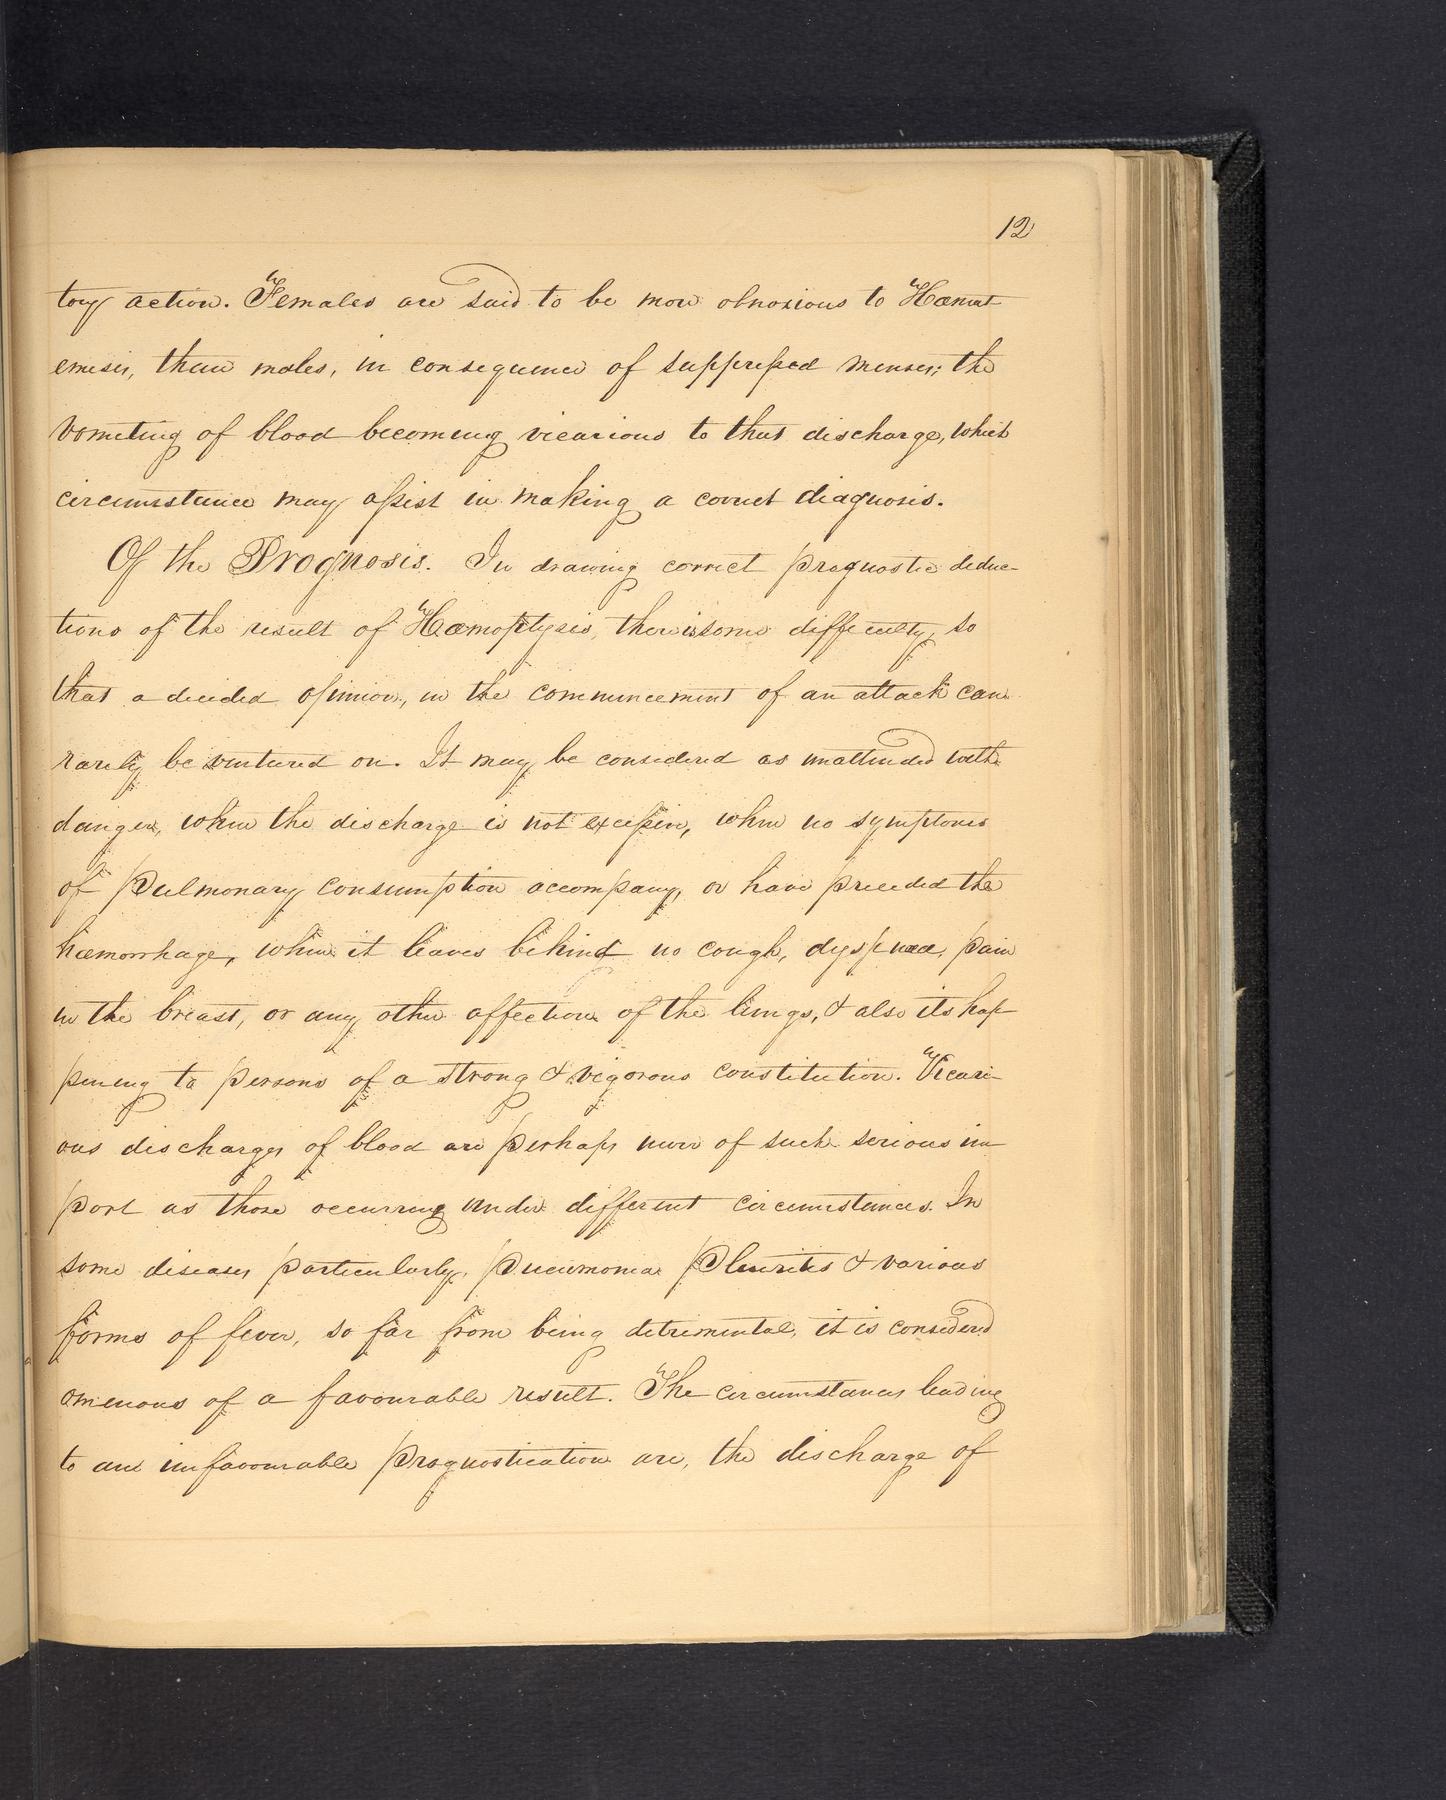 12
tory action. Females are said to be more obnoxious to Hæmat
emesis, than males, in consequence of suppressed menses; the
vomiting of blood becoming vicarious to that discharge, which
circumstance may assist in making a correct diagnosis.
Of the Prognosis. In drawing correct prognostic deduc-
tions of the result of Hæmoptysis, there is some difficulty, so
that a decided opinion, in the commencement of an attack can
rarely be ventured on. It may be considered as unattended with
danger, when the discharge is not excessive, when no symptoms
of Pulmonary consumption accompany, or have preceded the
hæmorrhage, when it leaves behind no cough, dyspnœa, pain
in the breast, or any other affection of the lungs, & also its hap
pening to persons of a strong & vigorous constitution. Vicari-
ous discharges of blood are perhaps never of such serious im
port as those occurring under different circumstances. In
some diseases particularly, Pneumonia Pleuritis & various
forms of fever, so far from being detrimental, it is considered
omenous of a favourable result. The circumstances leading
to an unfavourable prognostication are, the discharge of